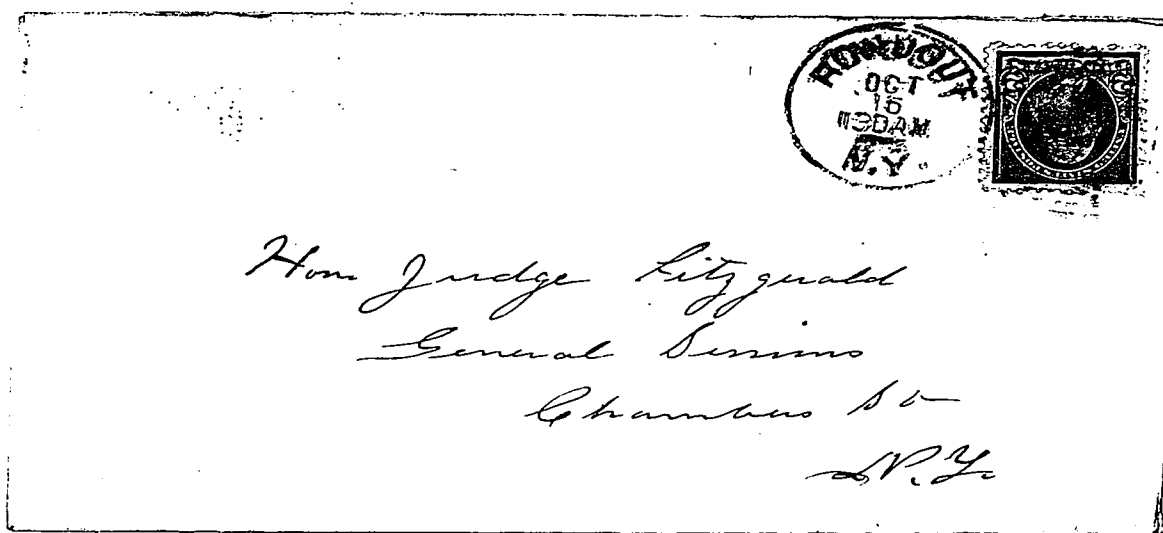 RONDOUT
OCT
16
1130AM
N.Y.
Hon Judge Fitzgerald
General Sessions
Chambers St
N.Y.